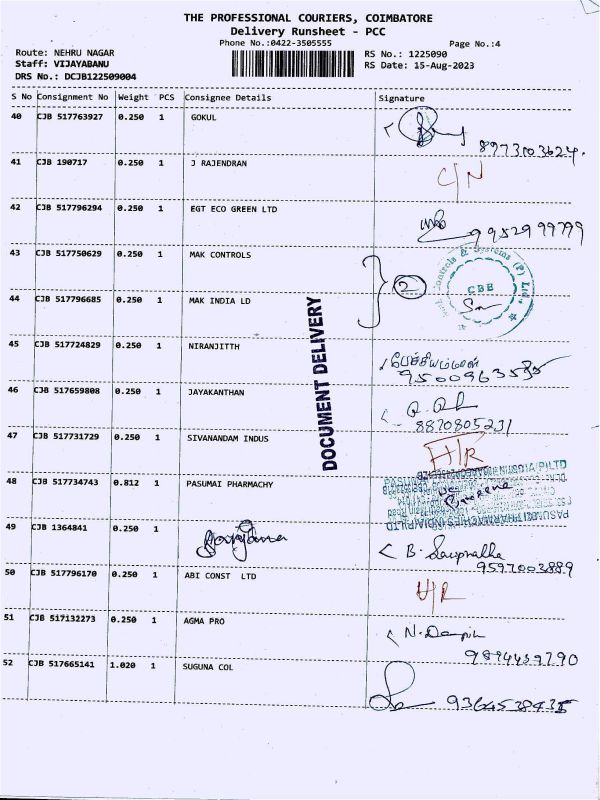 THE PROFESSIONAL COURIERS, COIMBATORE
Delivery Runsheet - PCC
Phone No.:0422-3505555
Page No.:4
Route: NEHRU NAGAR
RS No.: 1225090
Staff: VIJAYABANU
RS Date: 15-Aug-2023
DRS No.: DCJB122509004
S No Consignment No Weight PCS Consignee Details Signature
40 CJB 517763927 0.250 1 GOKUL
8973103624.
41 CJB 190717 0.250 1 J RAJENDRAN
C/N
42 CJB 517796294 0.250 1 EGT ECO GREEN LTD
9952999799
43 CJB 517750629 0.250 1 MAK CONTROLS
2
Controls & Systems (P) Ltd.
CBE
44 CJB 517796685 0.250 1 MAK INDIA LD
DOCUMENT DELIVERY
45 CJB 517724829 0.250 1 NIRANJITTH
பேச்சியம்மாள்
46 CJB 517659808 0.250 1 JAYAKANTHAN
8870805231
47 CJB 517731729 0.250 1 SIVANANDAM INDUS
H/R
48 CJB 517734743 0.812 1 PASUMAI PHARMACHY
PASUMAI PHARMACIES INDIA (P) LTD
49 CJB 1364841 0.250 1
9597003889
50 CJB 517796170 0.250 1 ABI CONST LTD
H/R
51 CJB 517132273 0.250 1 AGMA PRO
52 CJB 517665141 1.020 1 SUGUNA COL